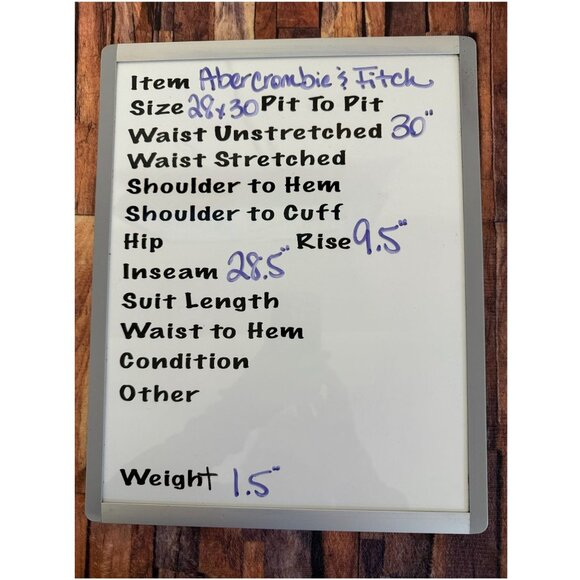 Item Abercrombie & Fitch
Size 28x30 Pit To Pit
Waist Unstretched 30"
Waist Stretched
Shoulder to Hem
Shoulder to Cuff
Hip Rise 9.5"
Inseam 28.5"
Suit Length
Waist to Hem
Condition
Other
Weight 1.5"